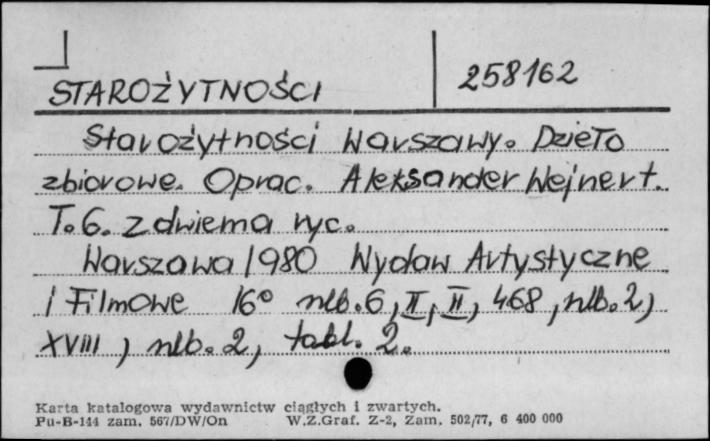 STAROŻYTNOŚCI
258162
Starożytności Warszawy. Dzieło
zbiorowe. Oprac. Aleksander Wejnert.
T.6. z dwiema ryc.
Warszawa 1980 Wydaw Artystyczne
i Filmowe 16° nlb.6, II, II, 468, nlb.2,
XVIII, nlb.2, tabl. 2.
Karta katalogowa wydawnictw ciągłych i zwartych.
Pu-B-144 zam. 567/DW/On W.Z.Graf. Z-2, Zam. 502/77, 6 400 000